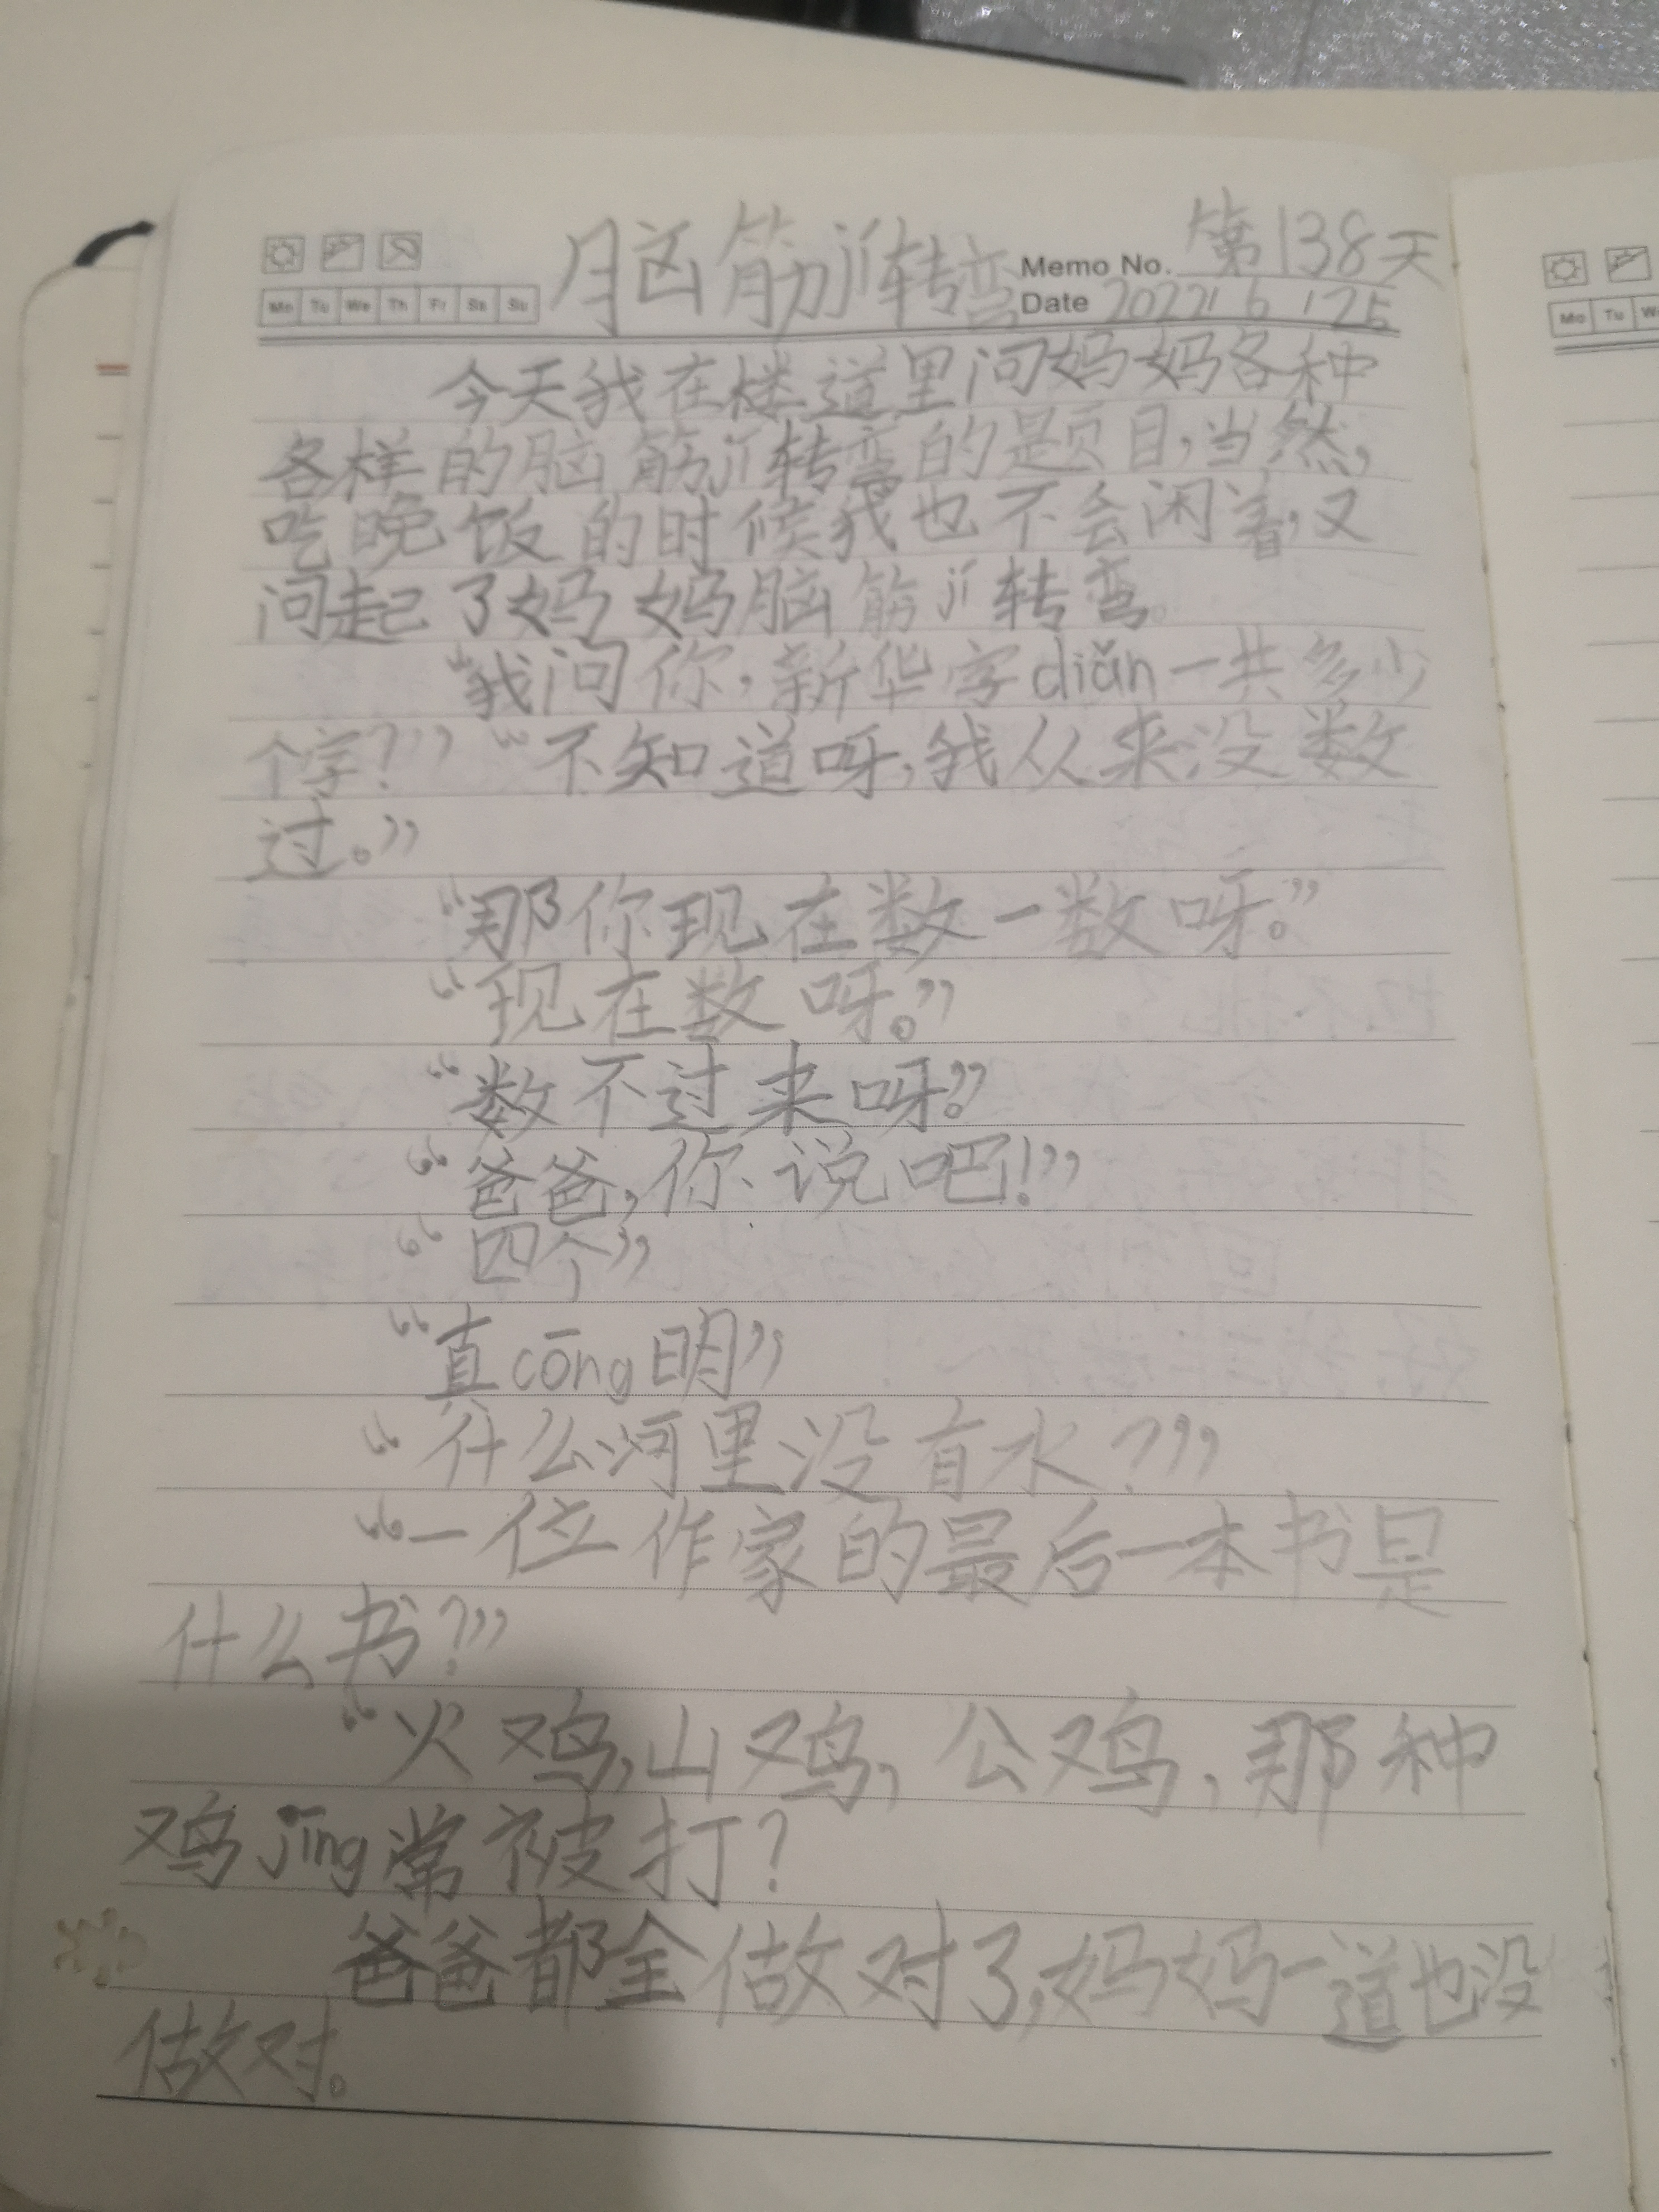 脑筋jí转弯 Memo No. 第138天
Mo Tu We Th Fr Sa Su Date 2022 6 25
今天我在楼道里问妈妈各种
各样的脑筋jí转弯的题目，当然，
吃晚饭的时候我也不会闲着，又
问起了妈妈脑筋jí转弯。
“我问你，新华字diǎn一共多少
个字？”“不知道呀，我从来没数
过。”
“那你现在数一数呀。”
“现在数呀。”
“数不过来呀。”
“爸爸，你说吧！”
“四个”
“真cōng明”
“什么河里没有水？”
“一位作家的最后一本书是
什么书？”
“火鸡，山鸡，公鸡，那种
鸡jīng常被打？
爸爸都全做对了，妈妈一道也没
做对。
Mo Tu W